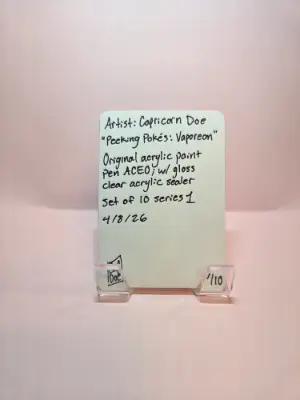 Artist: Capricorn Doe
"Peeking Pokés: Vaporeon"
Original acrylic paint
pen ACEO; w/ gloss
clear acrylic sealer
Set of 10 series 1
4/8/26
Doe
1/10